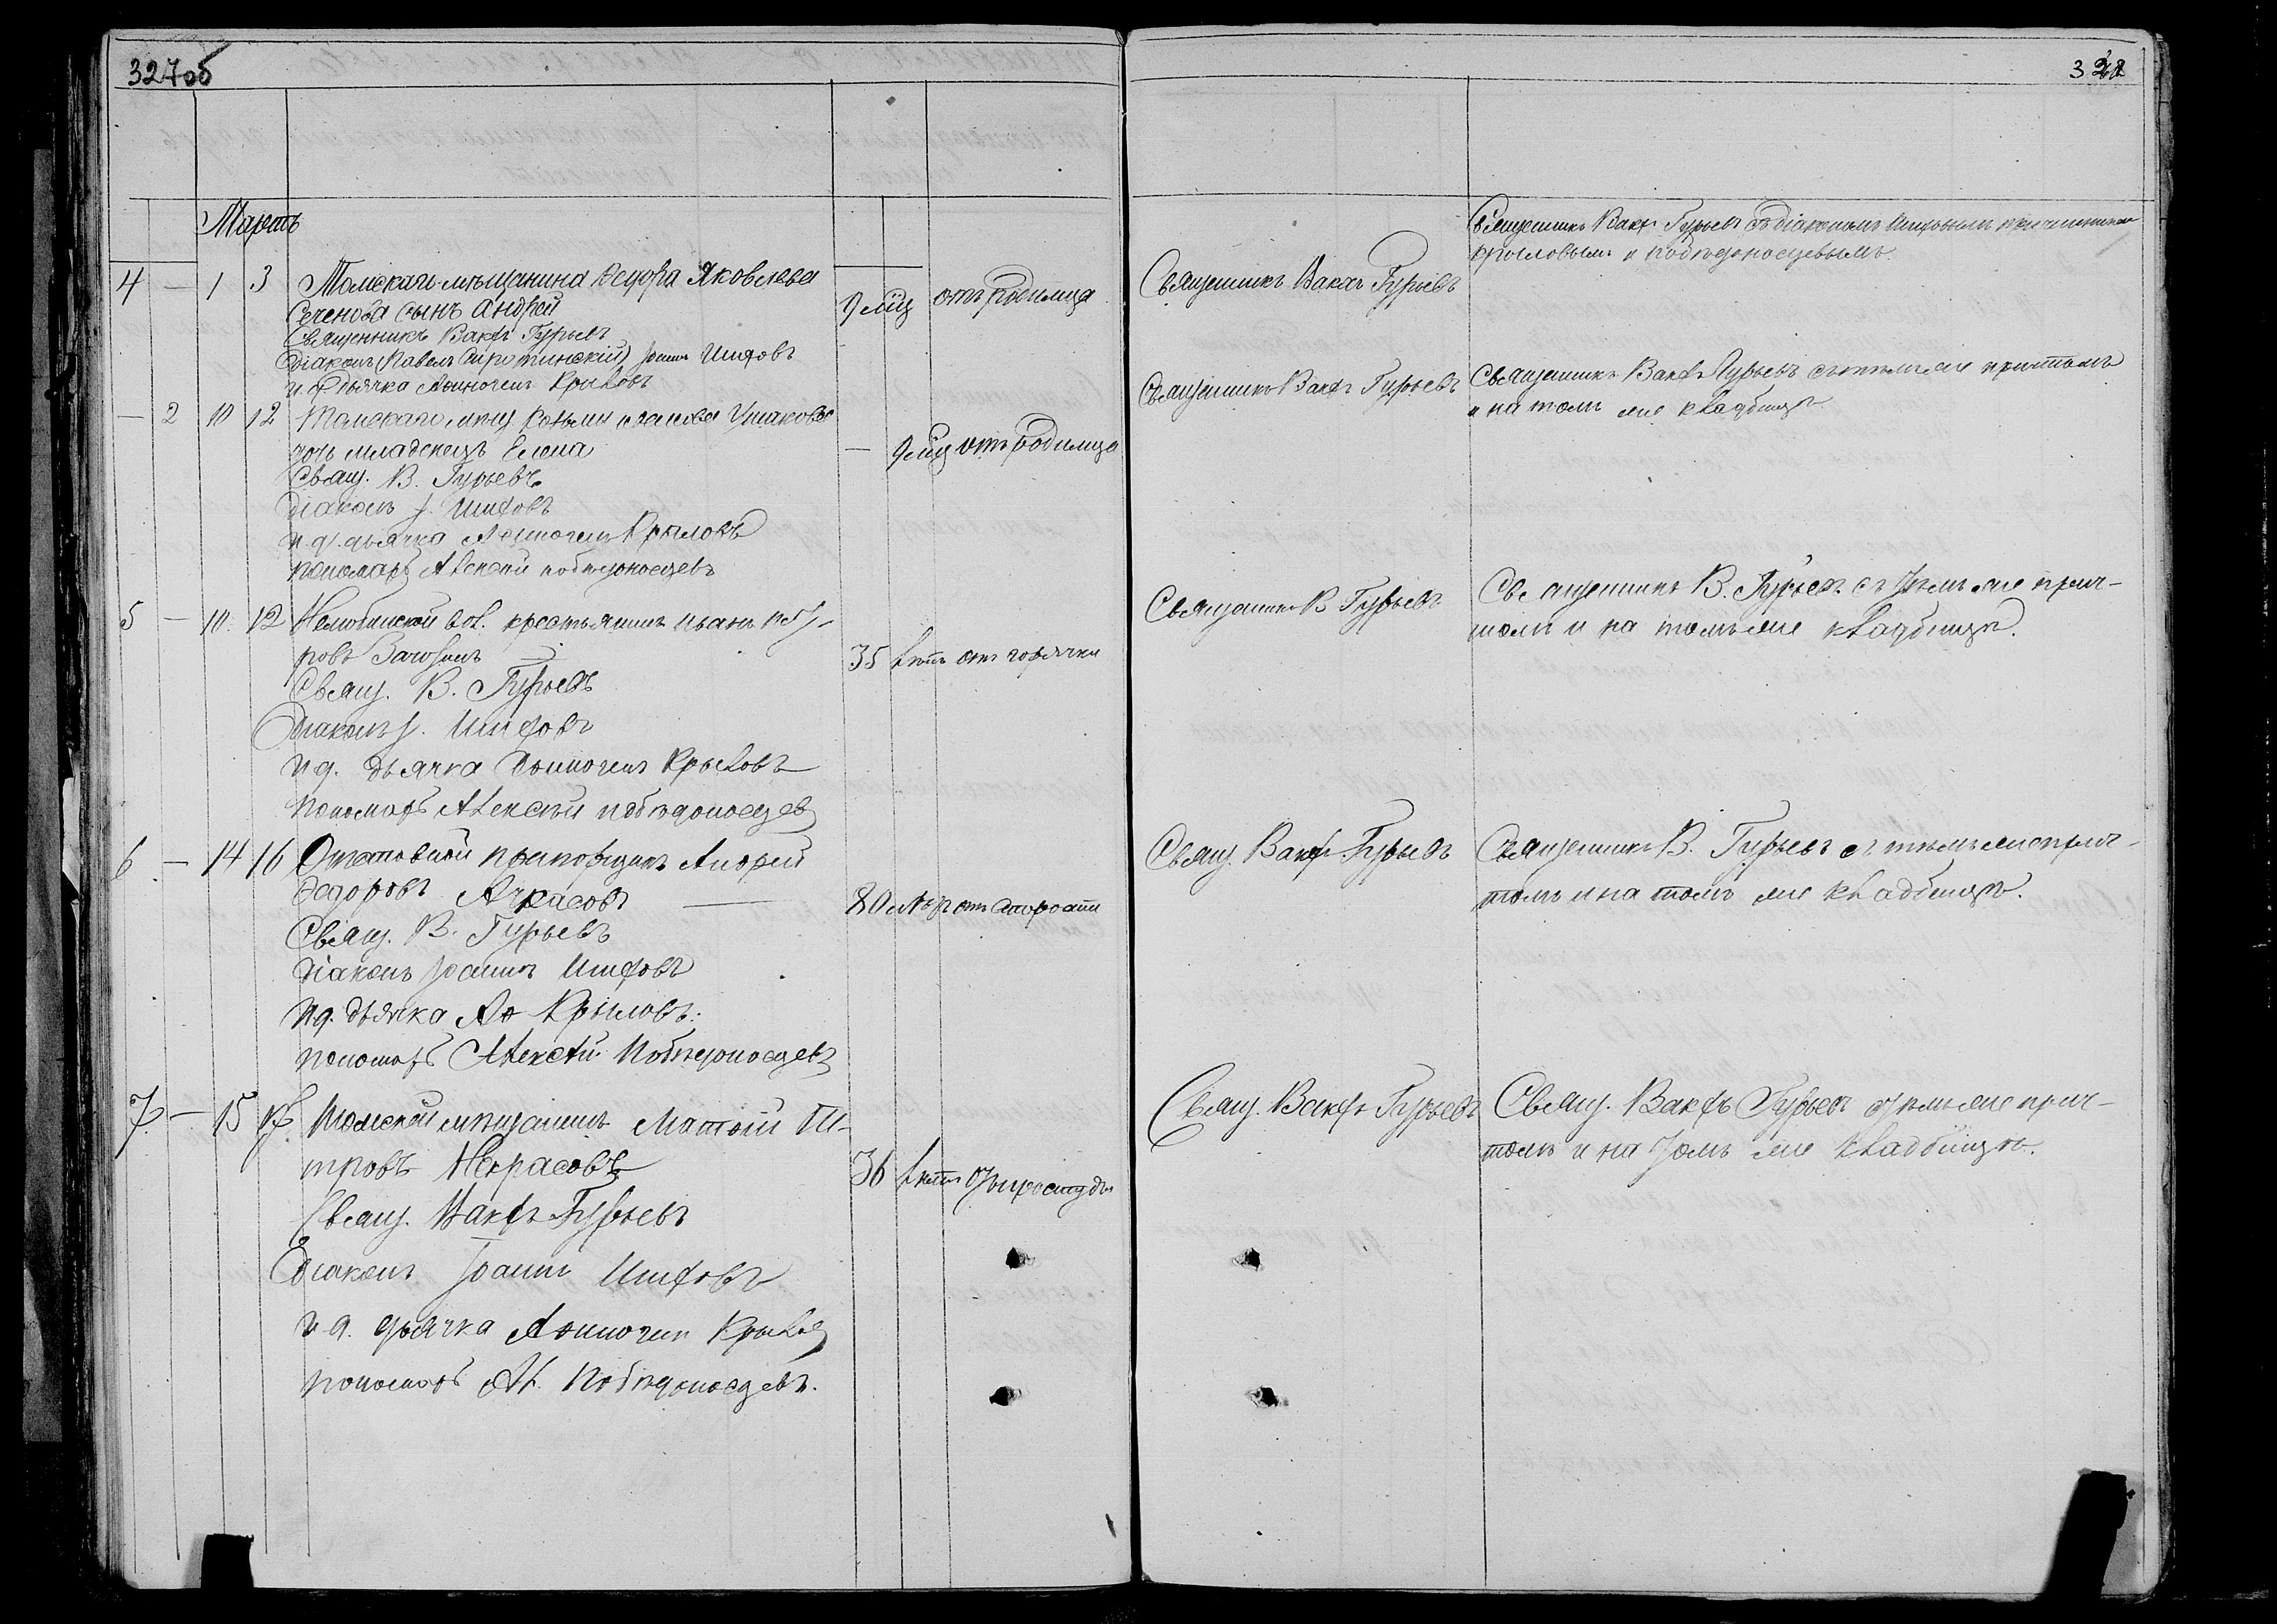 327об
328
Мартъ
4 — 1 3 Томскаго мѣщанина Ѳедора Яковлева
сынъ Андрей
9 мѣц отъ родимца
Священникъ Вакхъ Гурьевъ
Діаконъ (Павелъ Сиротинскій) Іоаннъ
и. д. дьячка Крыловъ
Священникъ Вакхъ Гурьевъ
Священникъ Вакхъ Гурьевъ съ діакономъ причетниками
Крыловымъ и Побѣдоносцевымъ.
— 2 10 12 Томскаго мѣщ. Козьмы Ушакова
дочь младенецъ Елена
— 9 мѣц отъ родимца
Свящ. В. Гурьевъ
Діаконъ І.
и. д. дьячка Крыловъ
пономарь Алексѣй Побѣдоносцевъ
Священникъ Вакхъ Гурьевъ
Священникъ Вакхъ Гурьевъ съ тѣмъ же причтомъ
и на томъ же кладбищѣ
5 — 10. 12 Нелюбинской вол. крестьянинъ Иванъ Пет-
ровъ
35 лѣтъ отъ горячки
Свящ. В. Гурьевъ
Діаконъ І.
и д. дьячка Крыловъ
пономарь Алексѣй Побѣдоносцевъ
Священникъ В Гурьевъ
Священникъ В. Гурьевъ съ тѣмъ же прич-
томъ и на томъ же кладбищѣ.
6 — 14 16 Отставной прапорщикъ Андрей
Ѳедоровъ Ачкасовъ
80 отъ старости
Свящ. В. Гурьевъ
Діаконъ Іоаннъ
и д. дьячка Крыловъ.
пономарь Алексѣй Побѣдоносцевъ
Свящ. Вакхъ Гурьевъ
Священникъ В. Гурьевъ съ тѣмъ же прич-
томъ и на томъ же кладбищѣ.
7. — 15 17 Томской мѣщанинъ Матвѣй Пе-
тровъ Некрасовъ
36 лѣтъ отъ простуды
Свящ. Вакхъ Гурьевъ
Діаконъ Іоаннъ
и. д. дьячка Крыловъ
пономарь Ал. Побѣдоносцевъ.
Свящ. Вакхъ Гурьевъ
Свящ. Вакхъ Гурьевъ съ тѣмъ же прич-
томъ и на томъ же кладбищѣ.